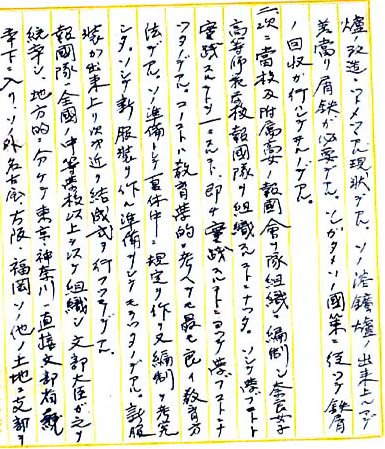 爐ノ改造ニツトメテヰル現状デアル。ソノ溶鑛爐ノ出来上レバ
屑鉄ガ必要デアル。シカタメソノ國策ニ従ツテ鉄屑
ノ回収ガ行ハレテヰルノデアル。
二、次ニ當校及附属高女ノ報國會ヲ隊組織ニ編制シ奈良女
高等師範學校報國隊ヲ組織スルコトニナツタ。ソシテ學ブコト
實践スルコト 即チ實践スルコトニヨツテ學ブコトニナ
ツタノデアル。コレハ教育學的ニ考ヘテモ最モ良イ教育方
法デアル。ソノ準備トシテ夏休中ニ規定ヲ作リ又編制ヲ考究
シタ。ソシテ新服装ヲ作ル準備ヲシテモラツタノデアル。新服
装ガ出来上リ次第近々結成式ヲ行フノデアル。
報國隊ハ全國ノ中等學校以上ヲスベテ組織シ文部大臣ガ之ヲ
統率シ、地方的ニ分ケテ東京、神奈川ハ直接文部省
率下ニ入リ、ソノ外名古屋、大阪、福岡ソノ他ノ土地ニ支部ヲ